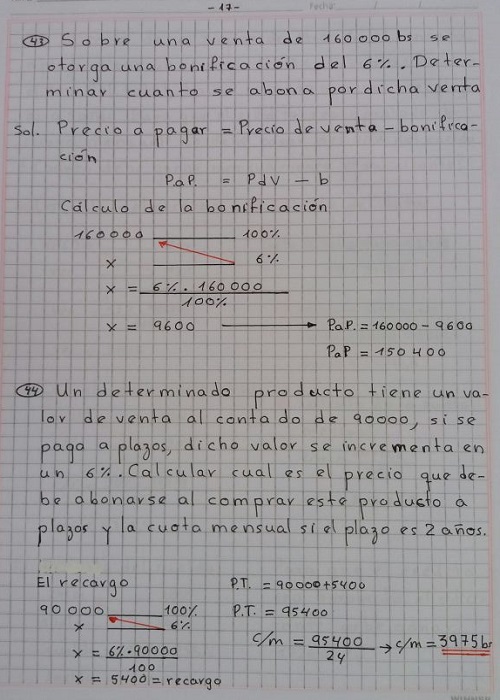 - 17 -
Fecha:
43 Sobre una venta de 160000bs se
otorga una bonificación del 6%. Deter-
minar cuanto se abona por dicha venta
Sol. Precio a pagar = Precio de venta - bonifica-
ción
PaP. = PdV - b
Cálculo de la bonificación
160000 100%
x 6%
x = 6%. 160000
100%
x = 9600 → PaP. = 160000 - 9600
PaP = 150400
44 Un determinado producto tiene un va-
lor de venta al contado de 90000, si se
paga a plazos, dicho valor se incrementa en
un 6%. Calcular cual es el precio que de-
be abonarse al comprar este producto a
plazos y la cuota mensual si el plazo es 2 años.
El recargo P.T. = 90000+5400
90000 100% P.T. = 95400
x 6%
x = 6%.90000 c/m = 95400 → c/m = 3975bs
100 24
x = 5400 = recargo